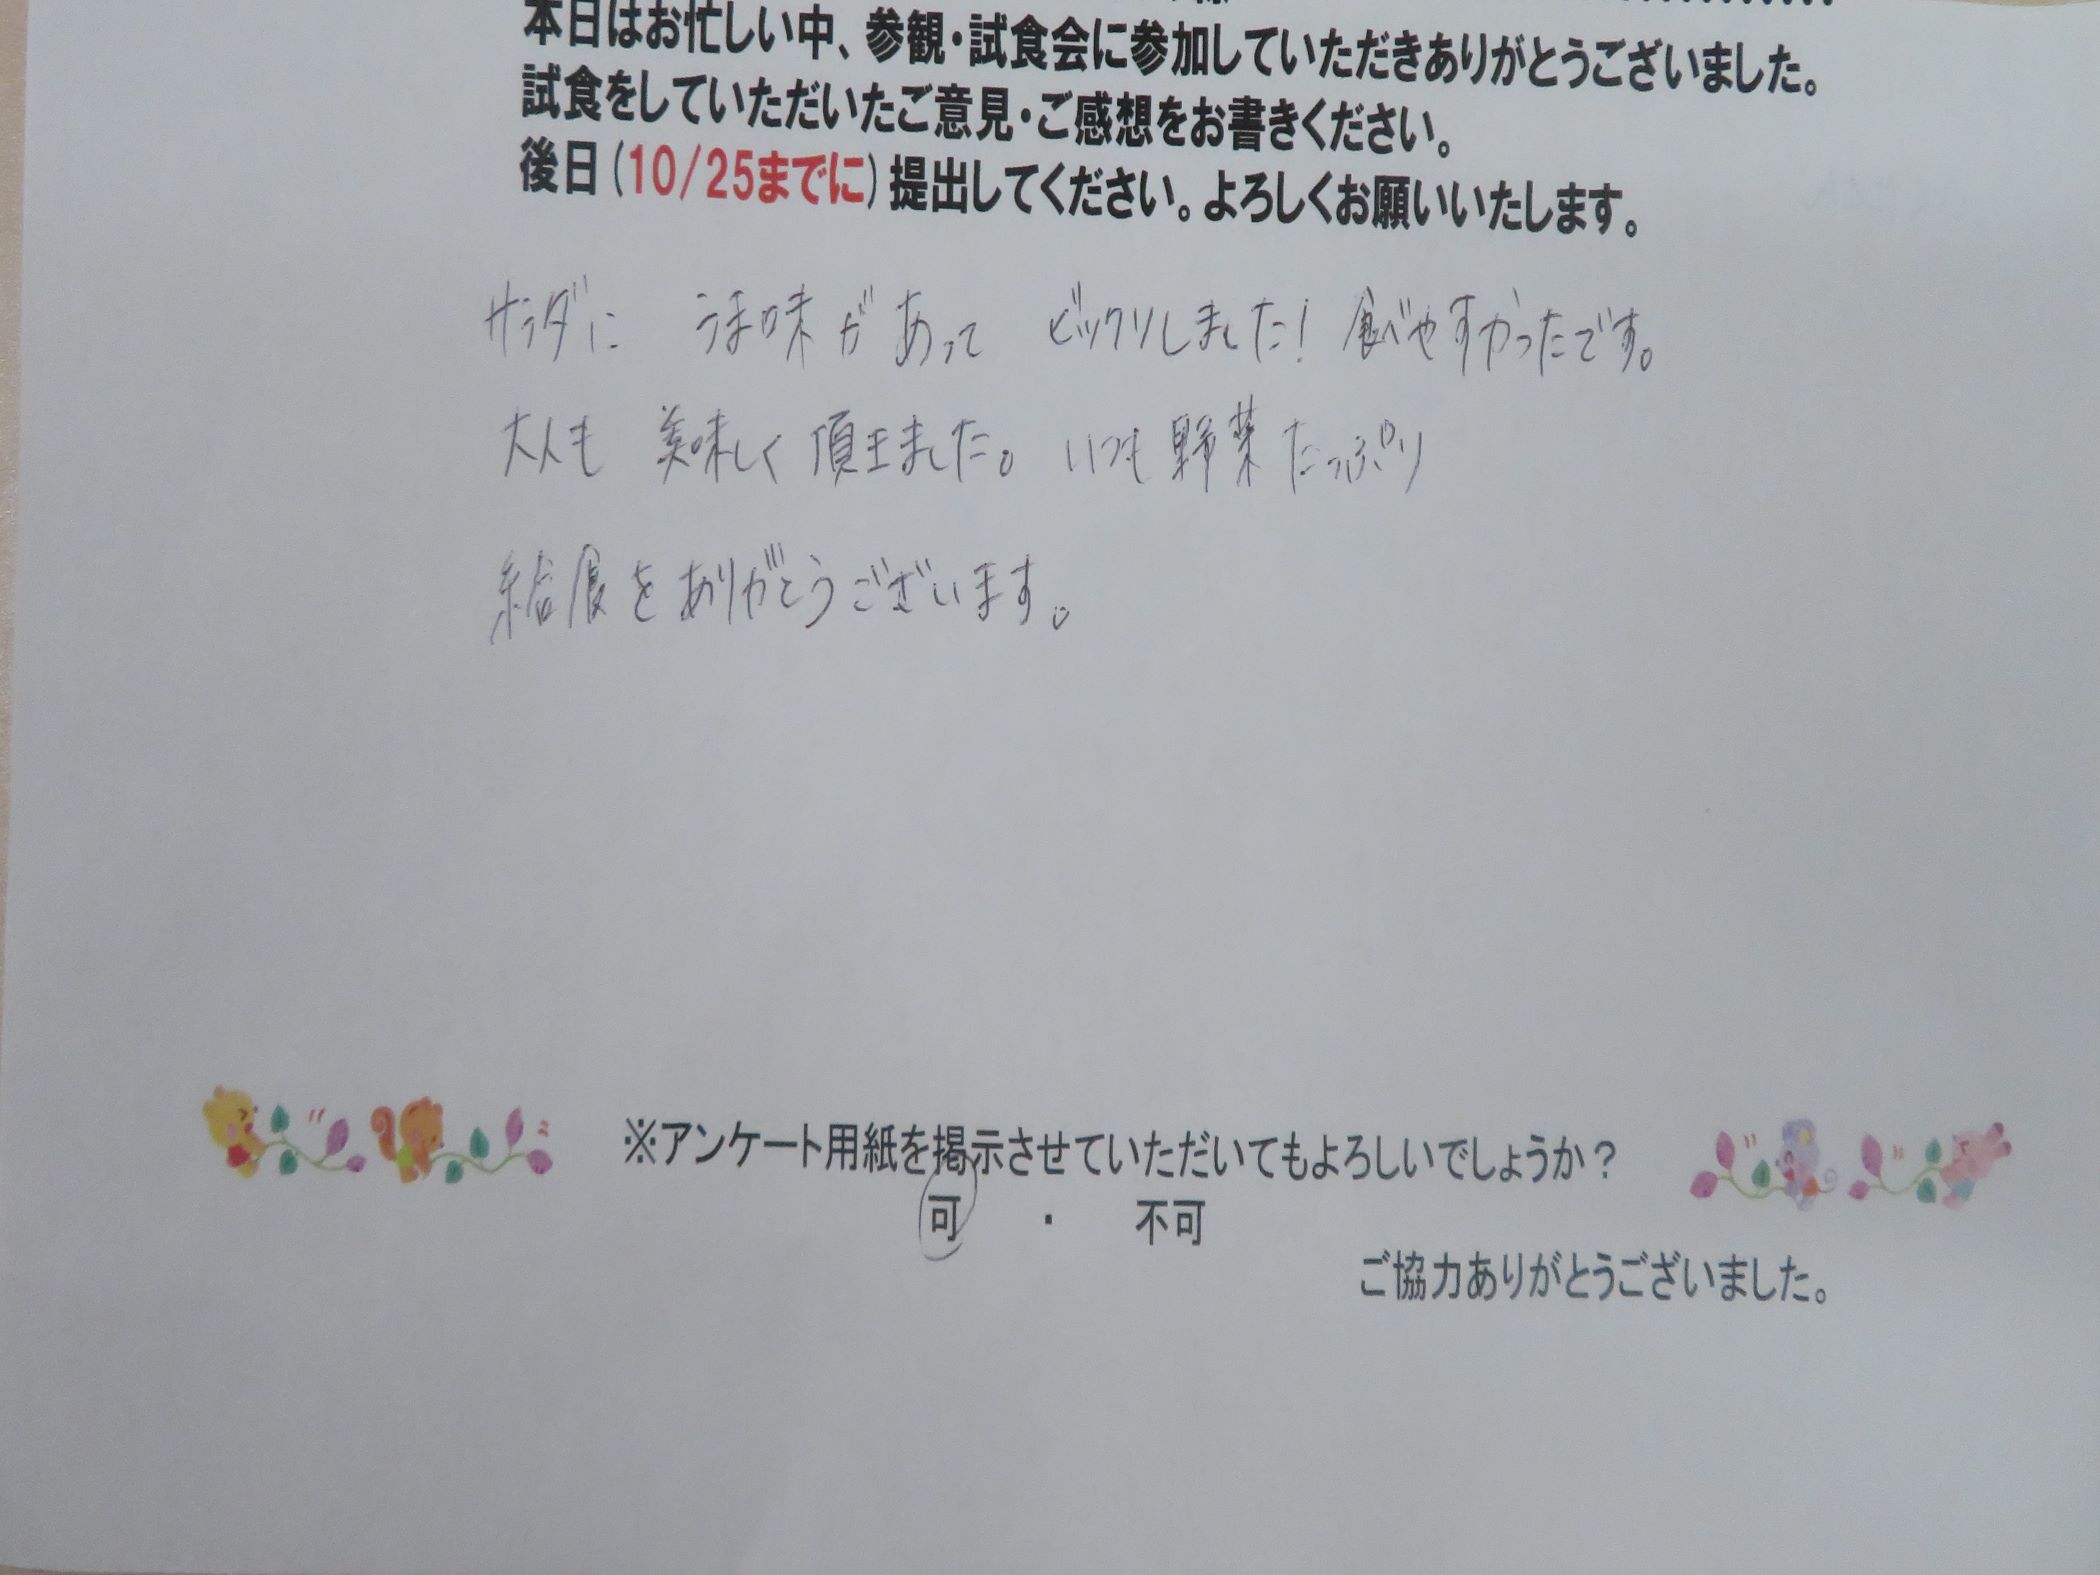 本日はお忙しい中、参観・試食会に参加していただきありがとうございました。
試食をしていただいたご意見・ご感想をお書きください。
後日(10/25までに)提出してください。よろしくお願いいたします。
サラダに うま味があって ビックリしました! 食べやすかったです。
大人も 美味しく頂きました。いつも野菜たっぷり
をありがとうございます。
※アンケート用紙を掲示させていただいてもよろしいでしょうか?
可 ・ 不可
ご協力ありがとうございました。